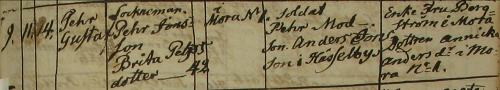 9. 11. 14. Pehr Gusta
Sockneman. Pehr Jons
son
Brita Pehrs
dotter 42
Mora N:1. Soldat
Pehr Mod
son. Anders Jons
son i Hässelby
Enke Fru Berg-
ström i Mora
Dottren Annicka
Anders dr i Mo-
ra No 1.